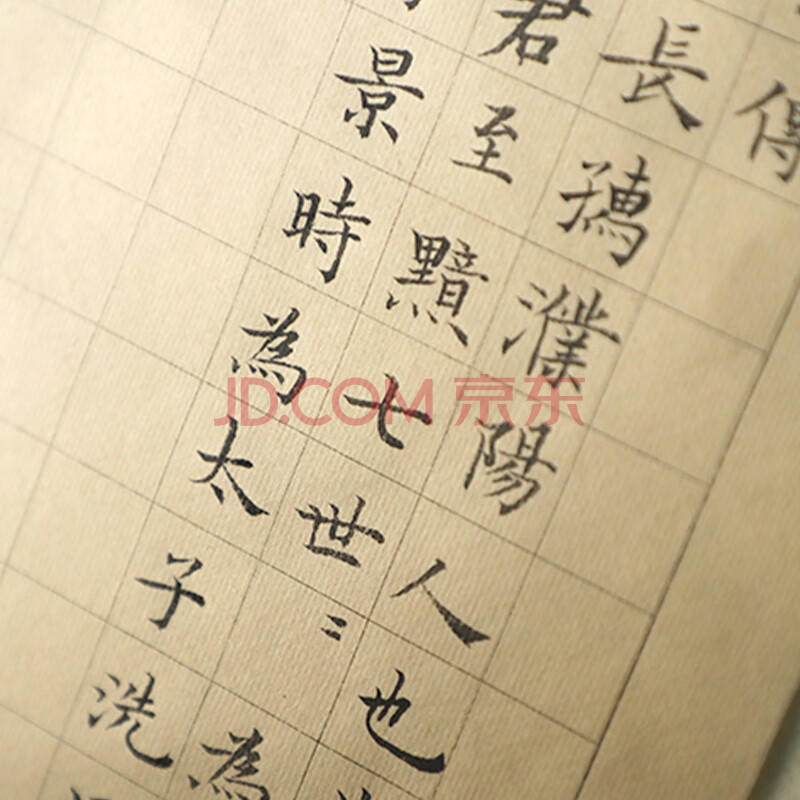 長孺濮陽人也
君至黯七世〻為
景時為太子洗
JD.COM 京东